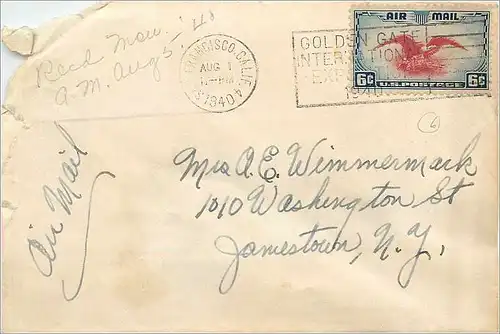 Recd Mon.
A.M. Aug 5 - '40
SAN FRANCISCO, CALIF.
AUG 1
-PM
1940
GOLDEN GATE
INTER
TION
EXP
1940
AIR MAIL
6¢ U.S. POSTAGE 6¢
Air Mail
Mrs A. E. Wimmermark
1010 Washington St
Jamestown, N.Y.